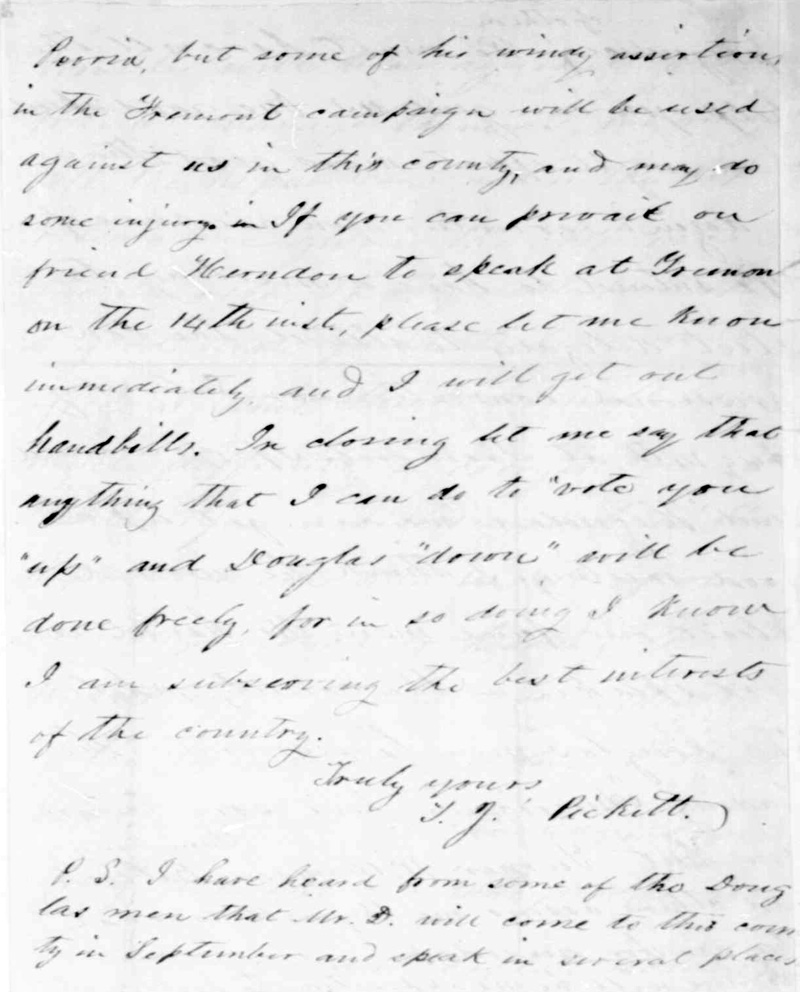 Peoria, but some of his windy assertions
in the Fremont campaign will be used
against us in this county, and may do
some injury. If you can prevail on
friend Herndon to speak at Tremont
on the 14th inst., please let me know
immediately, and I will get out
handbills. In closing let me say that
anything that I can do to "vote you
"up" and Douglas "down" will be
done freely, for in so doing I know
I am subserving the best interests
of the country.
Truly yours
T. J. Pickett.
P. S. I have heard from some of the Doug
las men that Mr. D. will come to this coun
ty in September and speak in several places